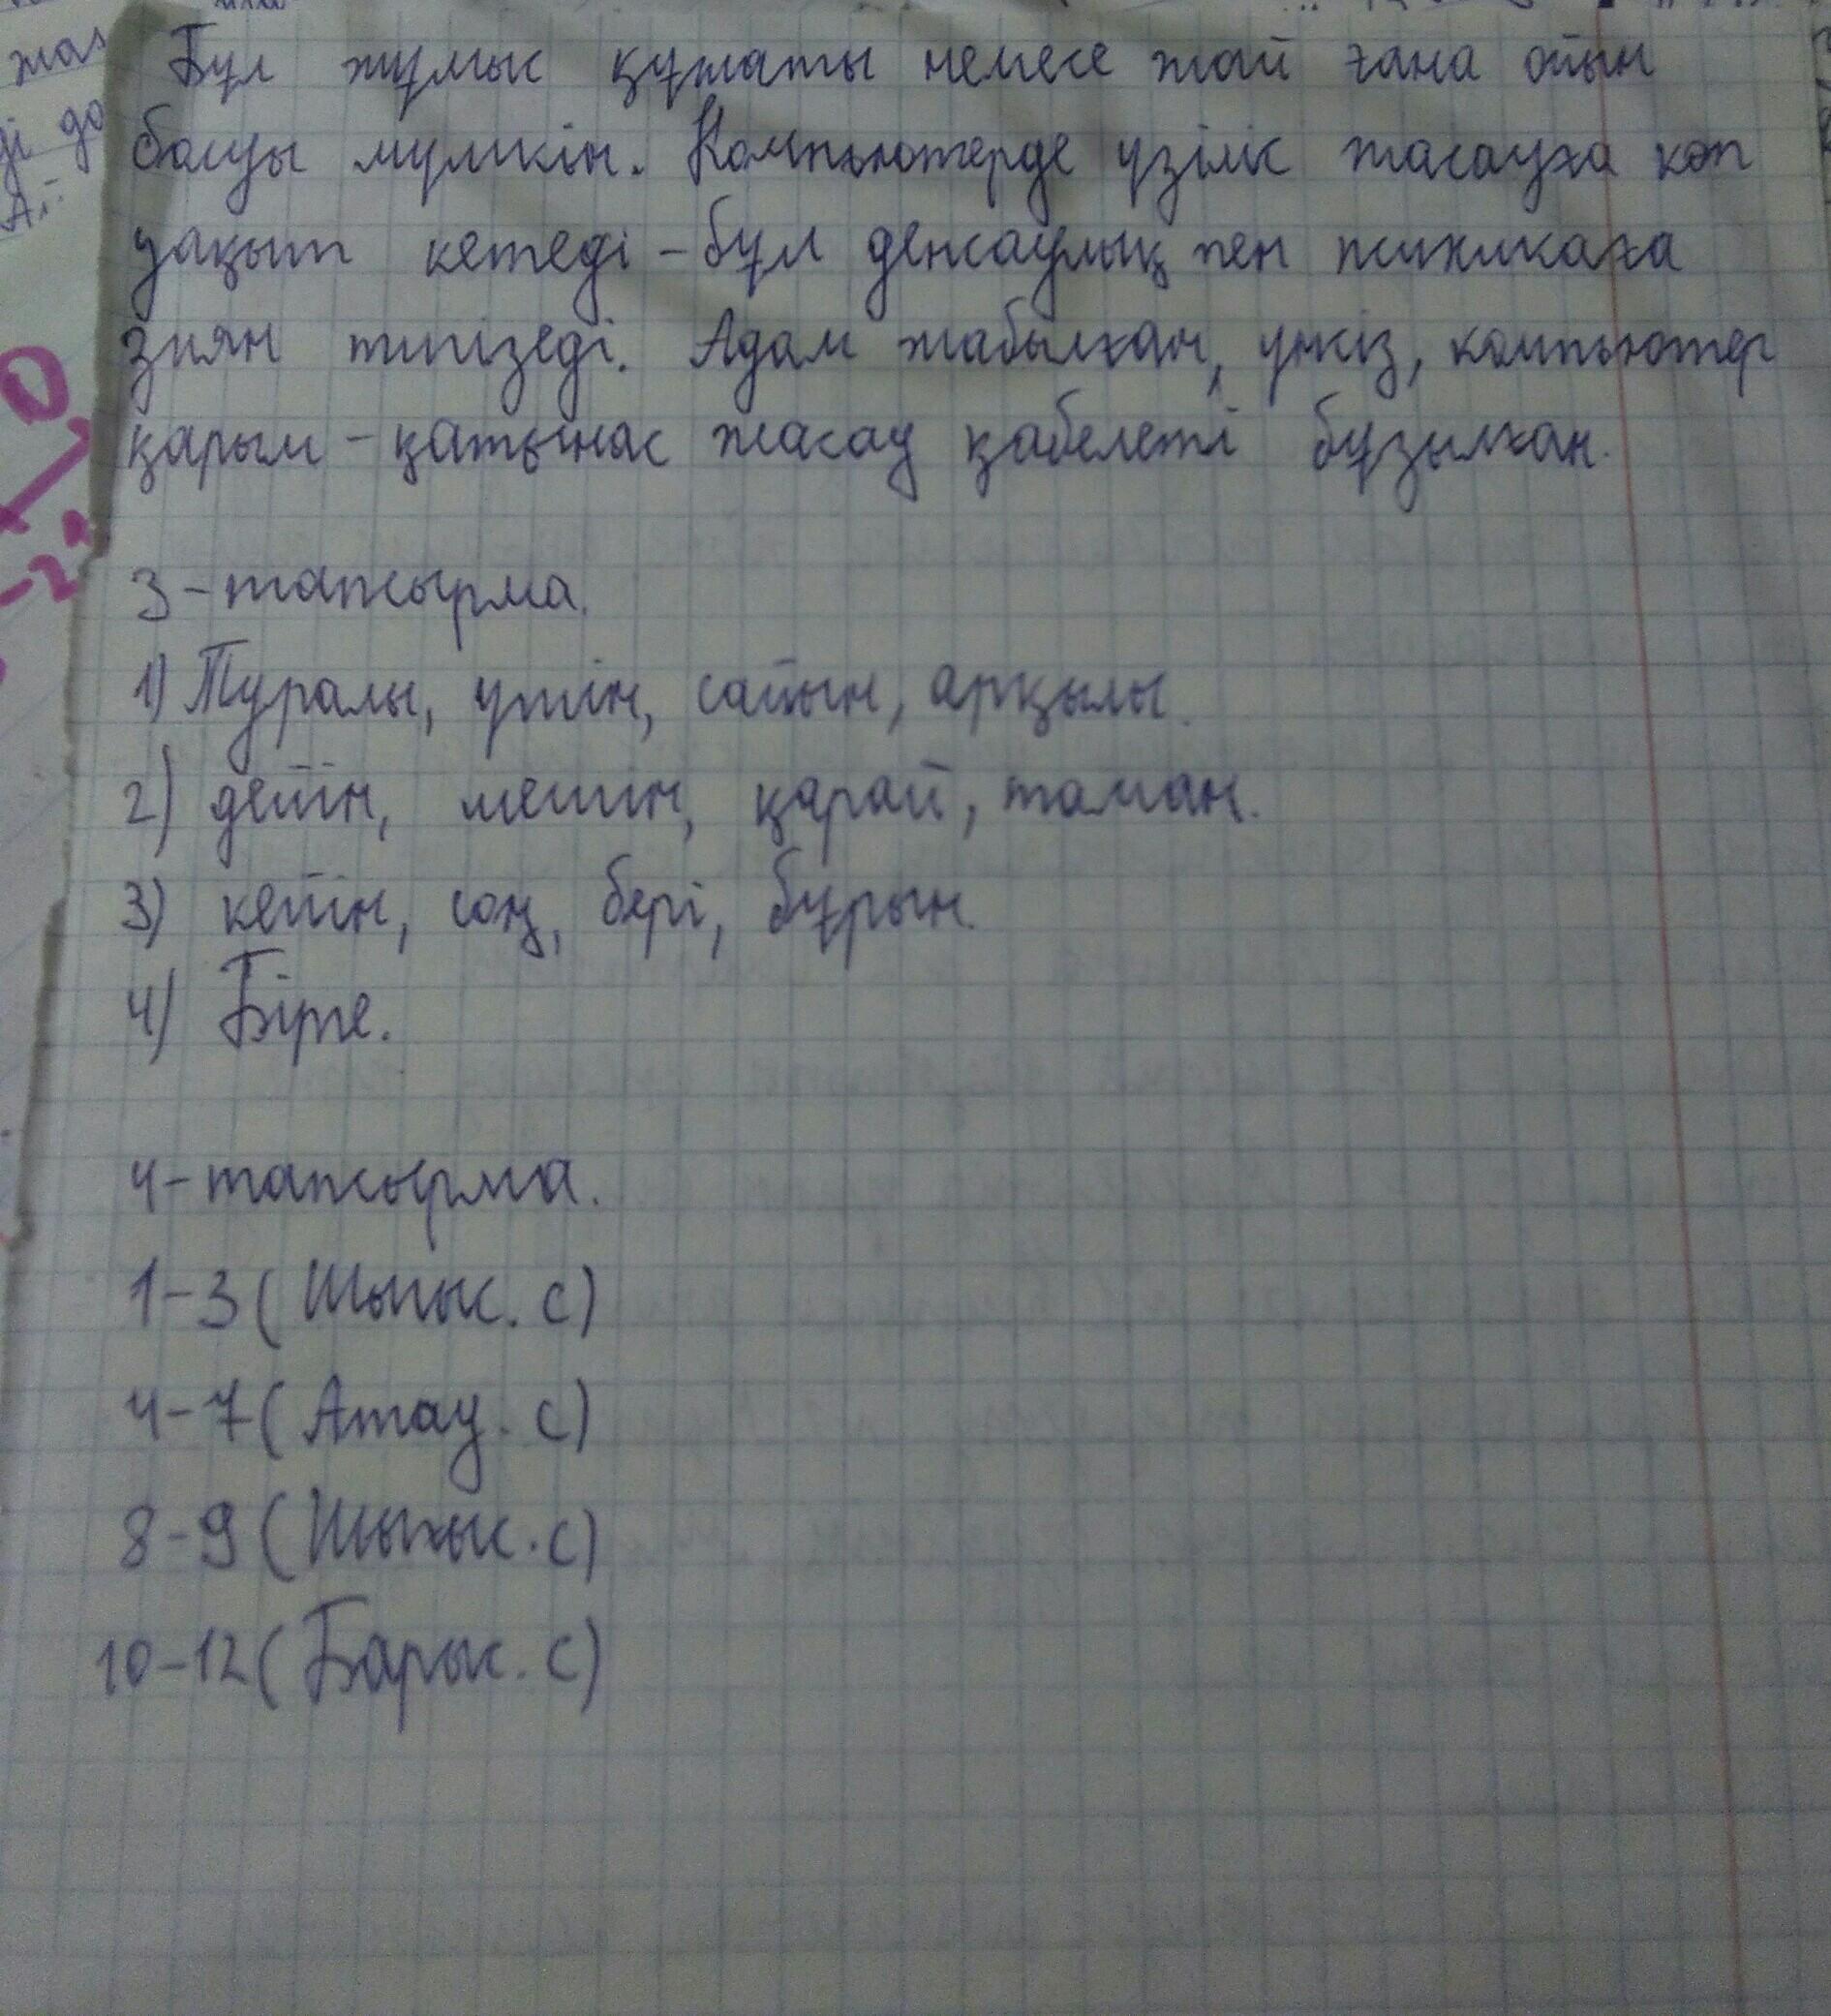 жал
ді до
Бұл жұмыс құжаты немесе жай ғана ойын
болуы мүмкін. Компьютерде үзіліс жасауға көп
уақыт кетеді - бұл денсаулық пен психикаға
зиян тигізеді. Адам жабылған, үнкіз, компьютер
қарым - қатынас жасау қабелеті бұзылған.
3-тапсырма.
1) Туралы, үшін, сайын, арқылы.
2) дейін, шейін, қарай, таман.
3) кейін, соң, бері, бұрын.
4) Бірге.
4-тапсырма.
1-3 (Шығыс. с)
4-7 (Атау. с)
8-9 (Шығыс. с)
10-12 (Барыс. с)